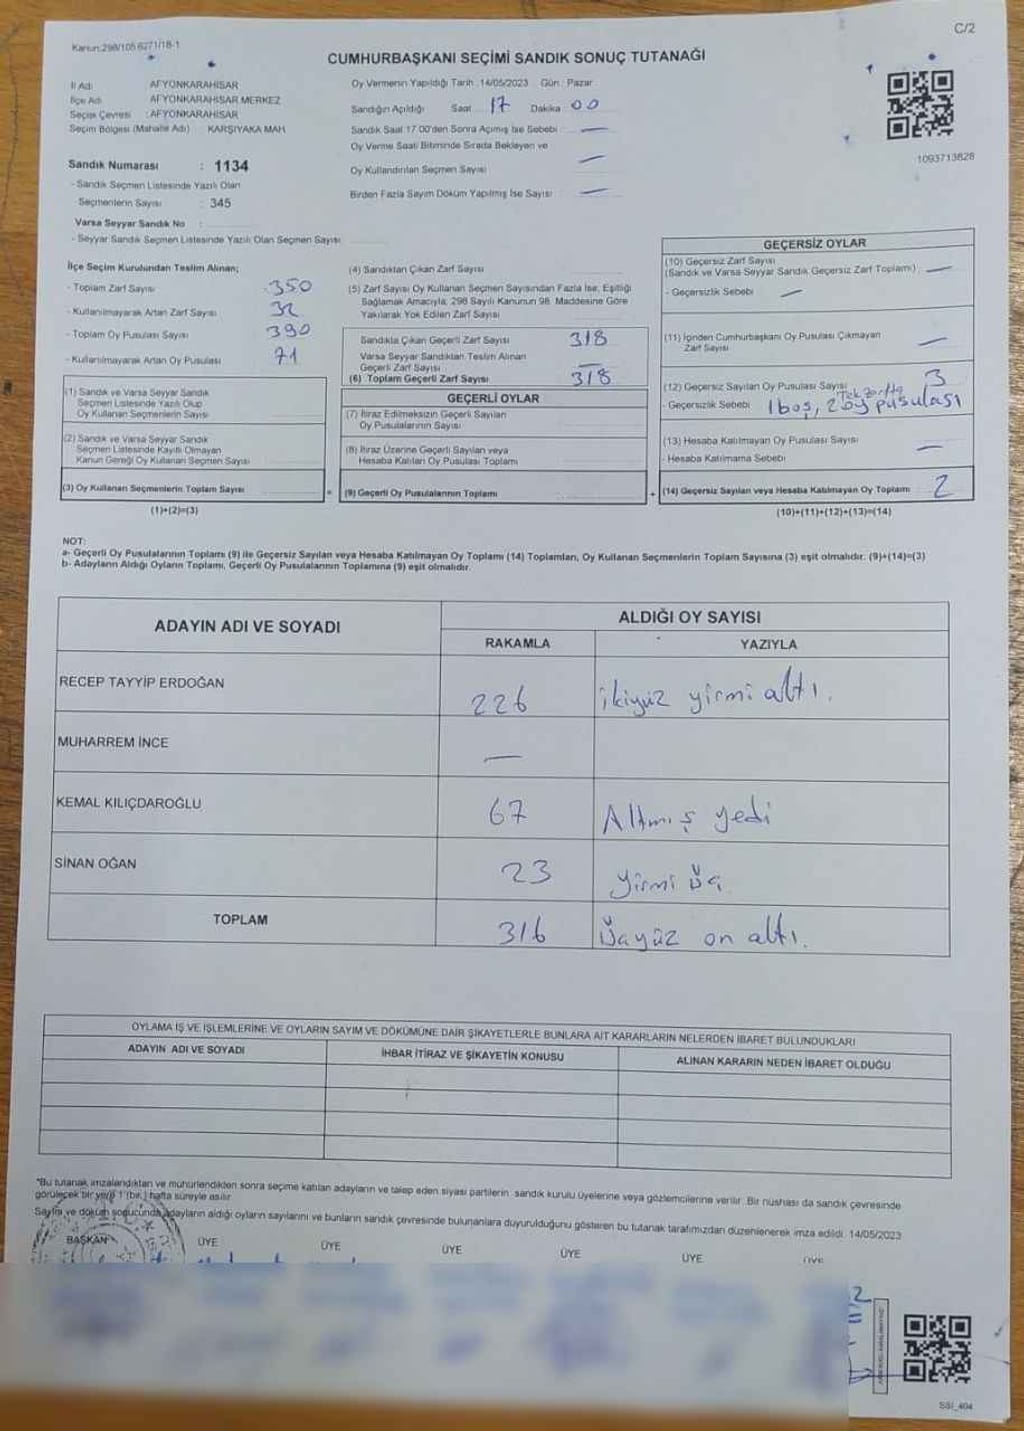 C/2
Kanun:298/105 6271/18-1
CUMHURBAŞKANI SEÇİMİ SANDIK SONUÇ TUTANAĞI
İl Adı AFYONKARAHİSAR
İlçe Adı AFYONKARAHİSAR MERKEZ
Seçim Çevresi : AFYONKARAHİSAR
Seçim Bölgesi (Mahalle Adı) KARŞIYAKA MAH
Sandık Numarası : 1134
- Sandık Seçmen Listesinde Yazılı Olan
Seçmenlerin Sayısı : 345
Varsa Seyyar Sandık No :
- Seyyar Sandık Seçmen Listesinde Yazılı Olan Seçmen Sayısı
Oy Vermenin Yapıldığı Tarih : 14/05/2023 Gün : Pazar
Sandığın Açıldığı Saat 17 Dakika 00
Sandık Saat 17.00'den Sonra Açımış İse Sebebi : —
Oy Verme Saati Bitiminde Sırada Bekleyen ve
Oy Kullandırılan Seçmen Sayısı —
Birden Fazla Sayım Döküm Yapılmış İse Sayısı : —
1093713828
İlçe Seçim Kurulundan Teslim Alınan;
- Toplam Zarf Sayısı 350
- Kullanılmayarak Artan Zarf Sayısı 32
- Toplam Oy Pusulası Sayısı 390
- Kullanılmayarak Artan Oy Pusulası 71
(1) Sandık ve Varsa Seyyar Sandık
Seçmen Listesinde Yazılı Olup
Oy Kullanan Seçmenlerin Sayısı
(2) Sandık ve Varsa Seyyar Sandık
Seçmen Listesinde Kayıtlı Olmayan
Kanun Gereği Oy Kullanan Seçmen Sayısı
(3) Oy Kullanan Seçmenlerin Toplam Sayısı =
(1)+(2)=(3)
(4) Sandıktan Çıkan Zarf Sayısı
(5) Zarf Sayısı Oy Kullanan Seçmen Sayısından Fazla İse, Eşitliği
Sağlamak Amacıyla, 298 Sayılı Kanunun 98. Maddesine Göre
Yakılarak Yok Edilen Zarf Sayısı
Sandıkta Çıkan Geçerli Zarf Sayısı 318
Varsa Seyyar Sandıktan Teslim Alınan
Geçerli Zarf Sayısı —
(6) Toplam Geçerli Zarf Sayısı 318
GEÇERLİ OYLAR
(7) İtiraz Edilmeksizin Geçerli Sayılan
Oy Pusulalarının Sayısı
(8) İtiraz Üzerine Geçerli Sayılan veya
Hesaba Katılan Oy Pusulası Toplamı
(9) Geçerli Oy Pusulalarının Toplamı +
GEÇERSİZ OYLAR
(10) Geçersiz Zarf Sayısı
(Sandık ve Varsa Seyyar Sandık Geçersiz Zarf Toplamı) : —
- Geçersizlik Sebebi : —
(11) İçinden Cumhurbaşkanı Oy Pusulası Çıkmayan
Zarf Sayısı —
(12) Geçersiz Sayılan Oy Pusulası Sayısı 3
Tek zarfta
- Geçersizlik Sebebi 1 boş, 2 oy pusulası
(13) Hesaba Katılmayan Oy Pusulası Sayısı —
- Hesaba Katılmama Sebebi
(14) Geçersiz Sayılan veya Hesaba Katılmayan Oy Toplamı 2
(10)+(11)+(12)+(13)=(14)
NOT:
a- Geçerli Oy Pusulalarının Toplamı (9) ile Geçersiz Sayılan veya Hesaba Katılmayan Oy Toplamı (14) Toplamları, Oy Kullanan Seçmenlerin Toplam Sayısına (3) eşit olmalıdır. (9)+(14)=(3)
b- Adayların Aldığı Oyların Toplamı, Geçerli Oy Pusulalarının Toplamına (9) eşit olmalıdır.
ADAYIN ADI VE SOYADI
ALDIĞI OY SAYISI
RAKAMLA YAZIYLA
RECEP TAYYİP ERDOĞAN 226 ikiyüz yirmi altı.
MUHARREM İNCE —
KEMAL KILIÇDAROĞLU 67 Altmış yedi
SİNAN OĞAN 23 yirmi üç
TOPLAM 316 üçyüz on altı.
OYLAMA İŞ VE İŞLEMLERİNE VE OYLARIN SAYIM VE DÖKÜMÜNE DAİR ŞİKAYETLERLE BUNLARA AİT KARARLARIN NELERDEN İBARET BULUNDUKLARI
ADAYIN ADI VE SOYADI İHBAR İTİRAZ VE ŞİKAYETİN KONUSU ALINAN KARARIN NEDEN İBARET OLDUĞU
*Bu tutanak imzalandıktan ve mühürlendikten sonra seçime katılan adayların ve talep eden siyasi partilerin sandık kurulu üyelerine veya gözlemcilerine verilir. Bir nüshası da sandık çevresinde
görülecek bir yere 1 (bir) hafta süreyle asılır.
Sayım ve döküm sonucunda adayların aldığı oyların sayılarını ve bunların sandık çevresinde bulunanlara duyurulduğunu gösteren bu tutanak tarafımızdan düzenlenerek imza edildi. 14/05/2023
BAŞKAN ÜYE ÜYE ÜYE ÜYE ÜYE ÜYE
SSİ_404